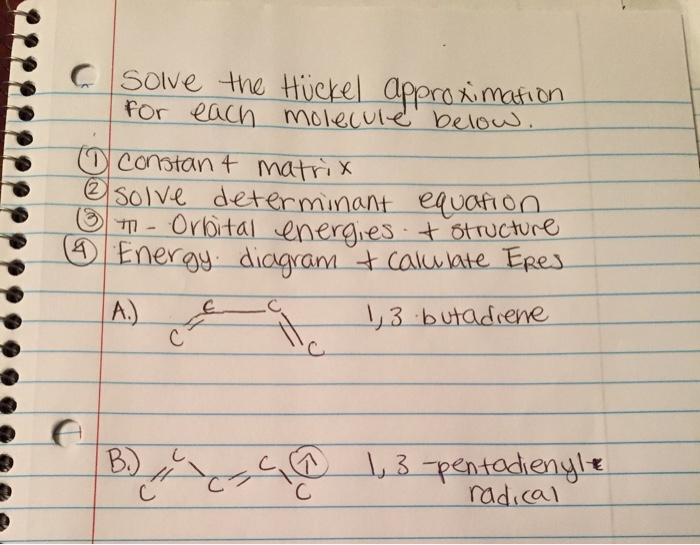 Solve the Hückel approximation
for each molecule below.
① constant matrix
② solve determinant equation
③ π - Orbital energies + structure
④ Energy diagram + calculate ERES
A.) C C C C 1,3 butadiene
B.) C C C C C ↑ 1,3 -pentadienyl
radical